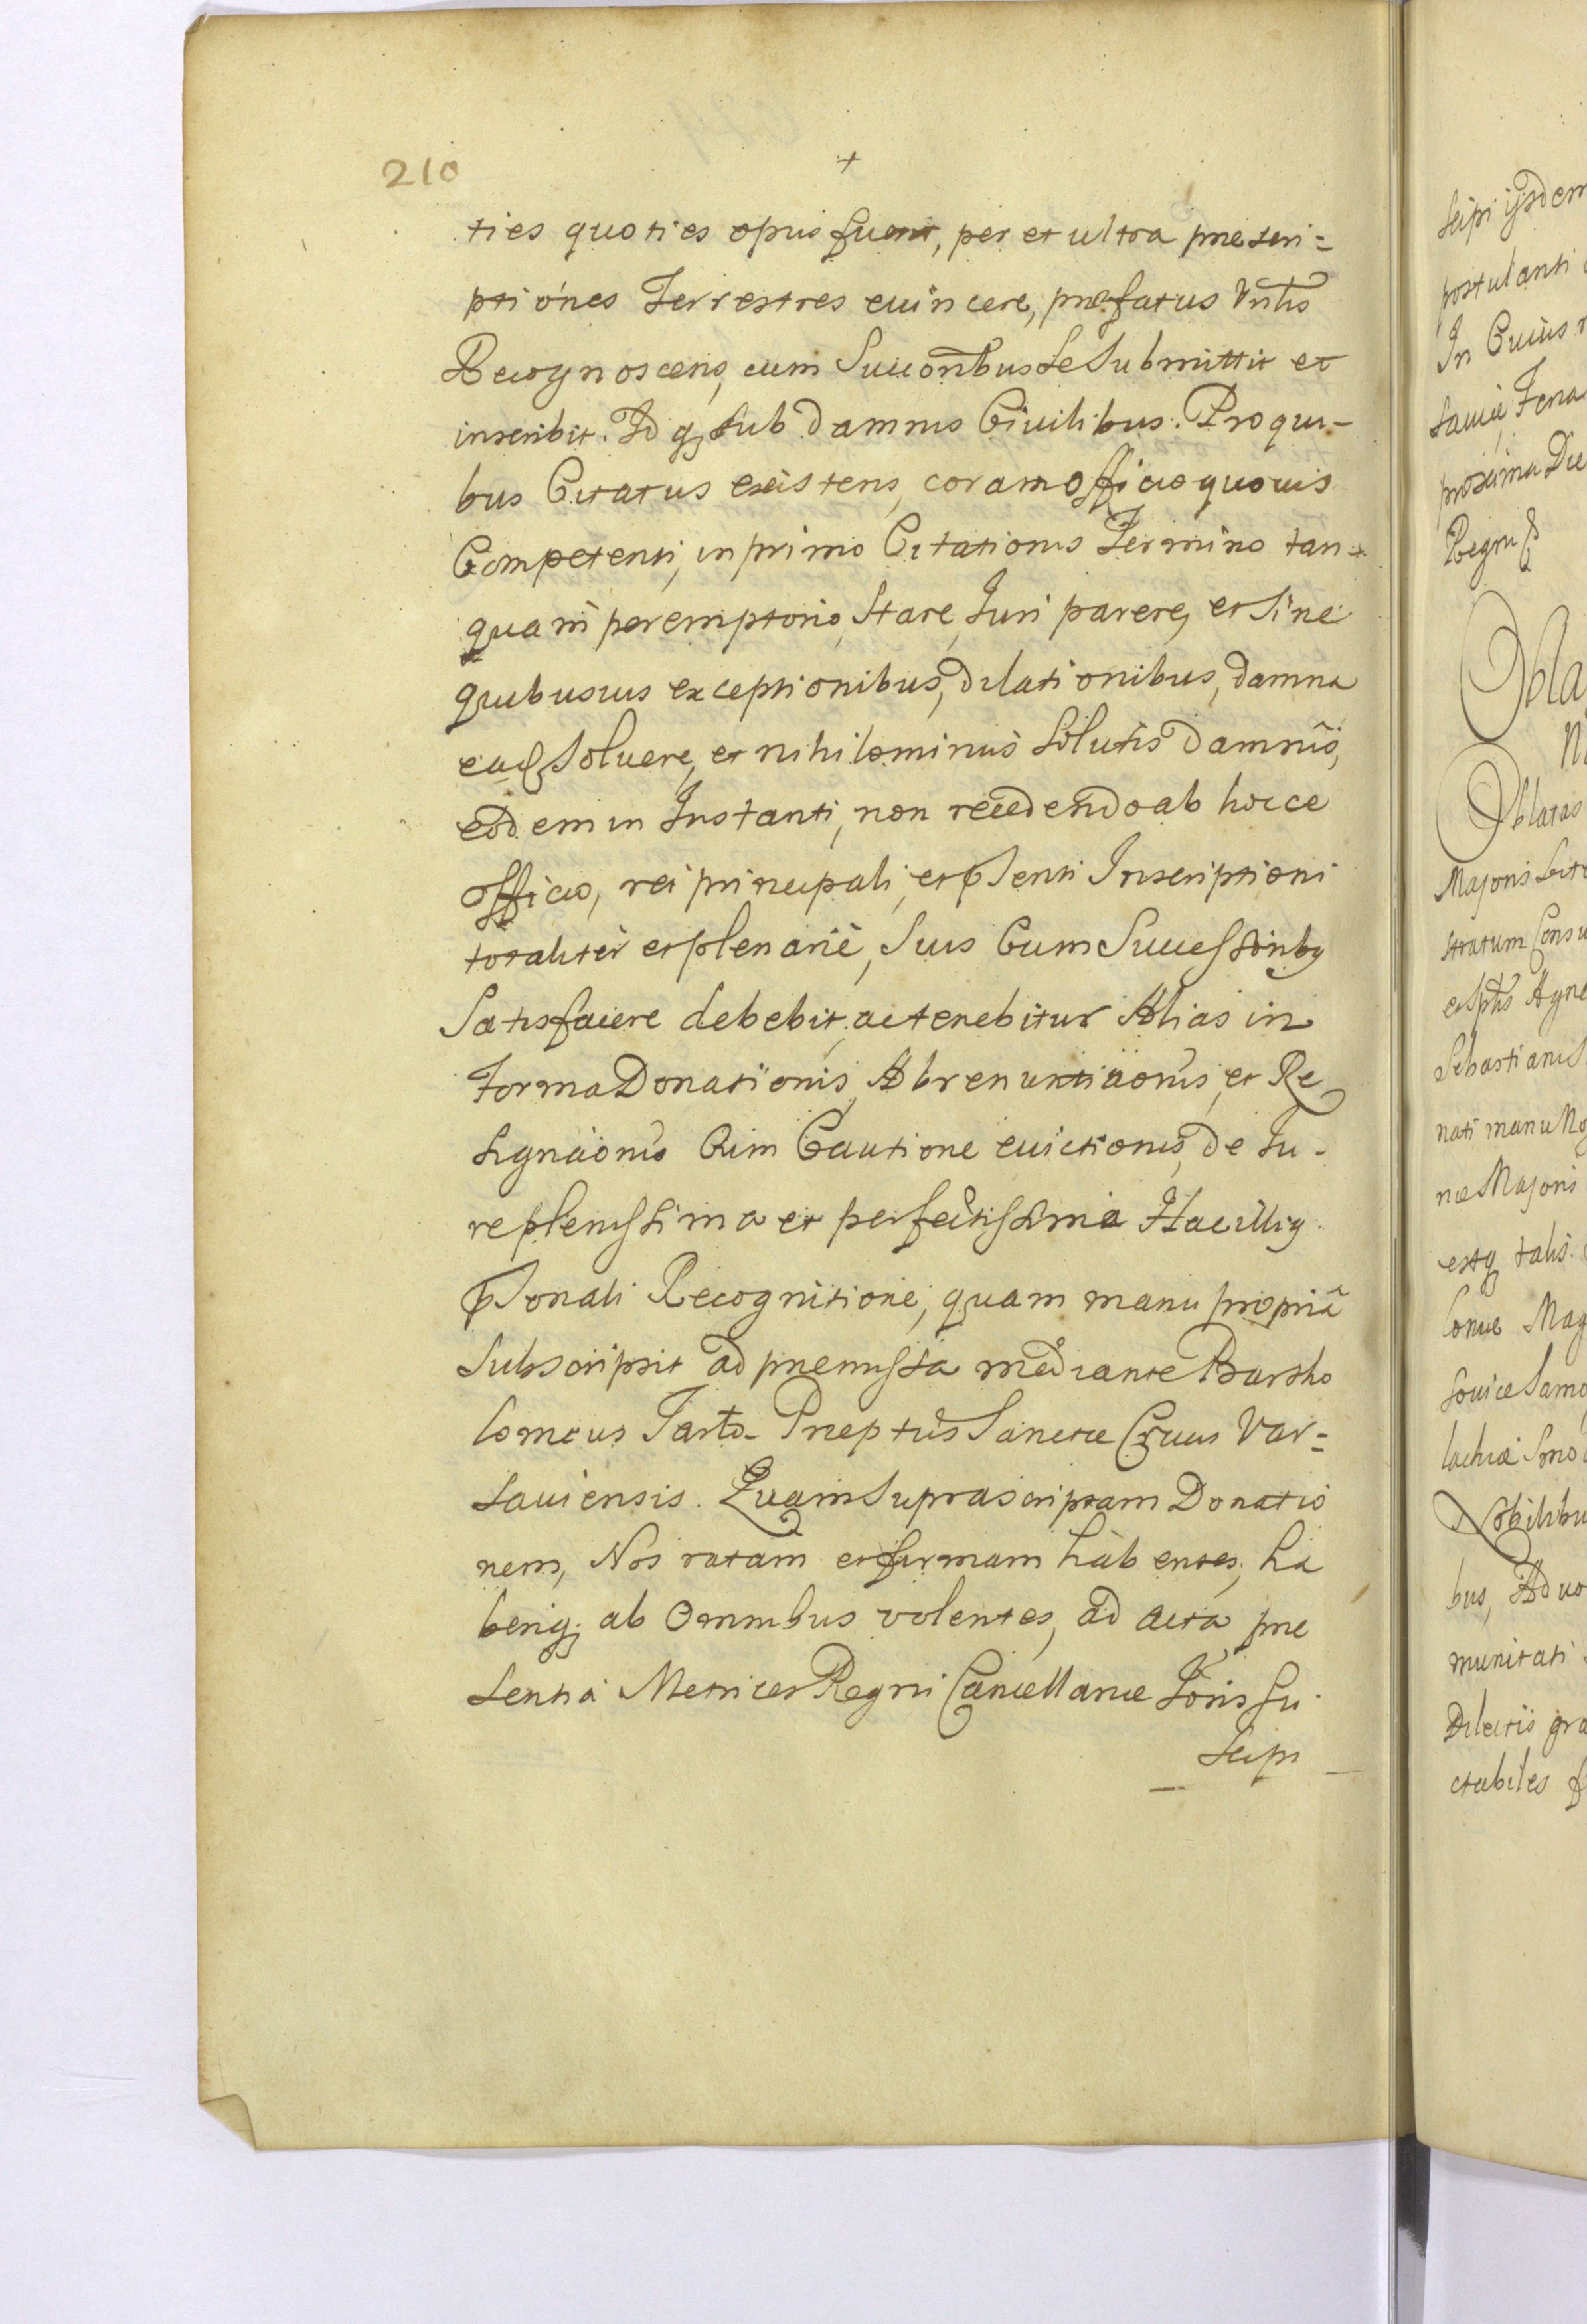 210
+
ties quoties opus fuerit, per et ultra præscri=
ptiones Terrestres euincere, præfatus Vrtlis
Recognoscens, cum Succoribus se submittit et
inscribit. Idq, sub damnis Ciuilibus. Pro qui-
bus Citatus existens, coram officio quouis
Competenti, in primo Citationis Termino tan=
quam peremptorio, stare, Juri parere, et sine
quibusuis exceptionibus, dilationibus, damna
soluere, et nihilominus solutis damnis,
eodem in Instanti, non recedendo ab hocce
officio, rei principali, et pſenti Inscriptioni
totaliter et plenarie, suis Cum Succeſsoribq
Satisfacere debebit, ac tenebitur Alias in
Forma Donationis, Abrenuntiaonis, et Re
signaonis Cum Cautione euictionis, de Ju-
re pleniſsima et perfectiſsima Hac illiq
pſonali Recognitione, quam manu propriâ
subscripsit ad præmiſsa mediante Bartho
lomeus Tarło Præptus Sanctæ Crucis Var=
sauiensis. Quam suprascriptam Donatio
nem, Nos ratam et firmam habentes, ha
beriq; ab omnibus volentes, ad acta præ
sentia Metrices Regni Cancellariæ Joris su
scipi
scipi ijsdem
postulanti
In Cuius
sauiæ Feria
proxima Die
Regni
Obla
Oblatas
Majoris
stratum Consu
Agne
Sebastianus
nati manu No
næ Majoris
estq talis.
Mag
souiæ Samo
lachiæ Smo
Nobilibu
bus, Aduo
munitati
Dilectis gra
ctabiles